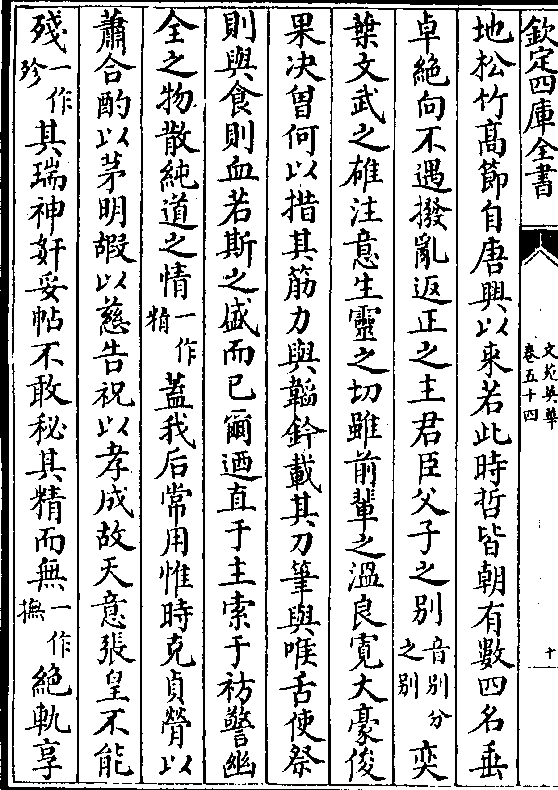 欽定四庫全書
文苑英華
卷五十四
十
地松竹高節自唐興以來若此時哲皆朝有數四名垂
卓絶向不遇撥亂返正之主君臣父子之别音别分之别奕
葉文武之雄注意生靈之切雖前輩之溫良寛大豪俊
果决曽何以措其筋力與韜鈐載其刀筆與喉舌使祭
則與食則血若斯之盛而已爾迺直于主索于祊警幽
全之物散純道之情一作精蓋我后常用惟時克貞膋以
蕭合酌以茅明嘏以慈告祝以孝成故天意張皇不能
殘一作殄其瑞神奸妥帖不敢秘其精而無一作撫絶軌享